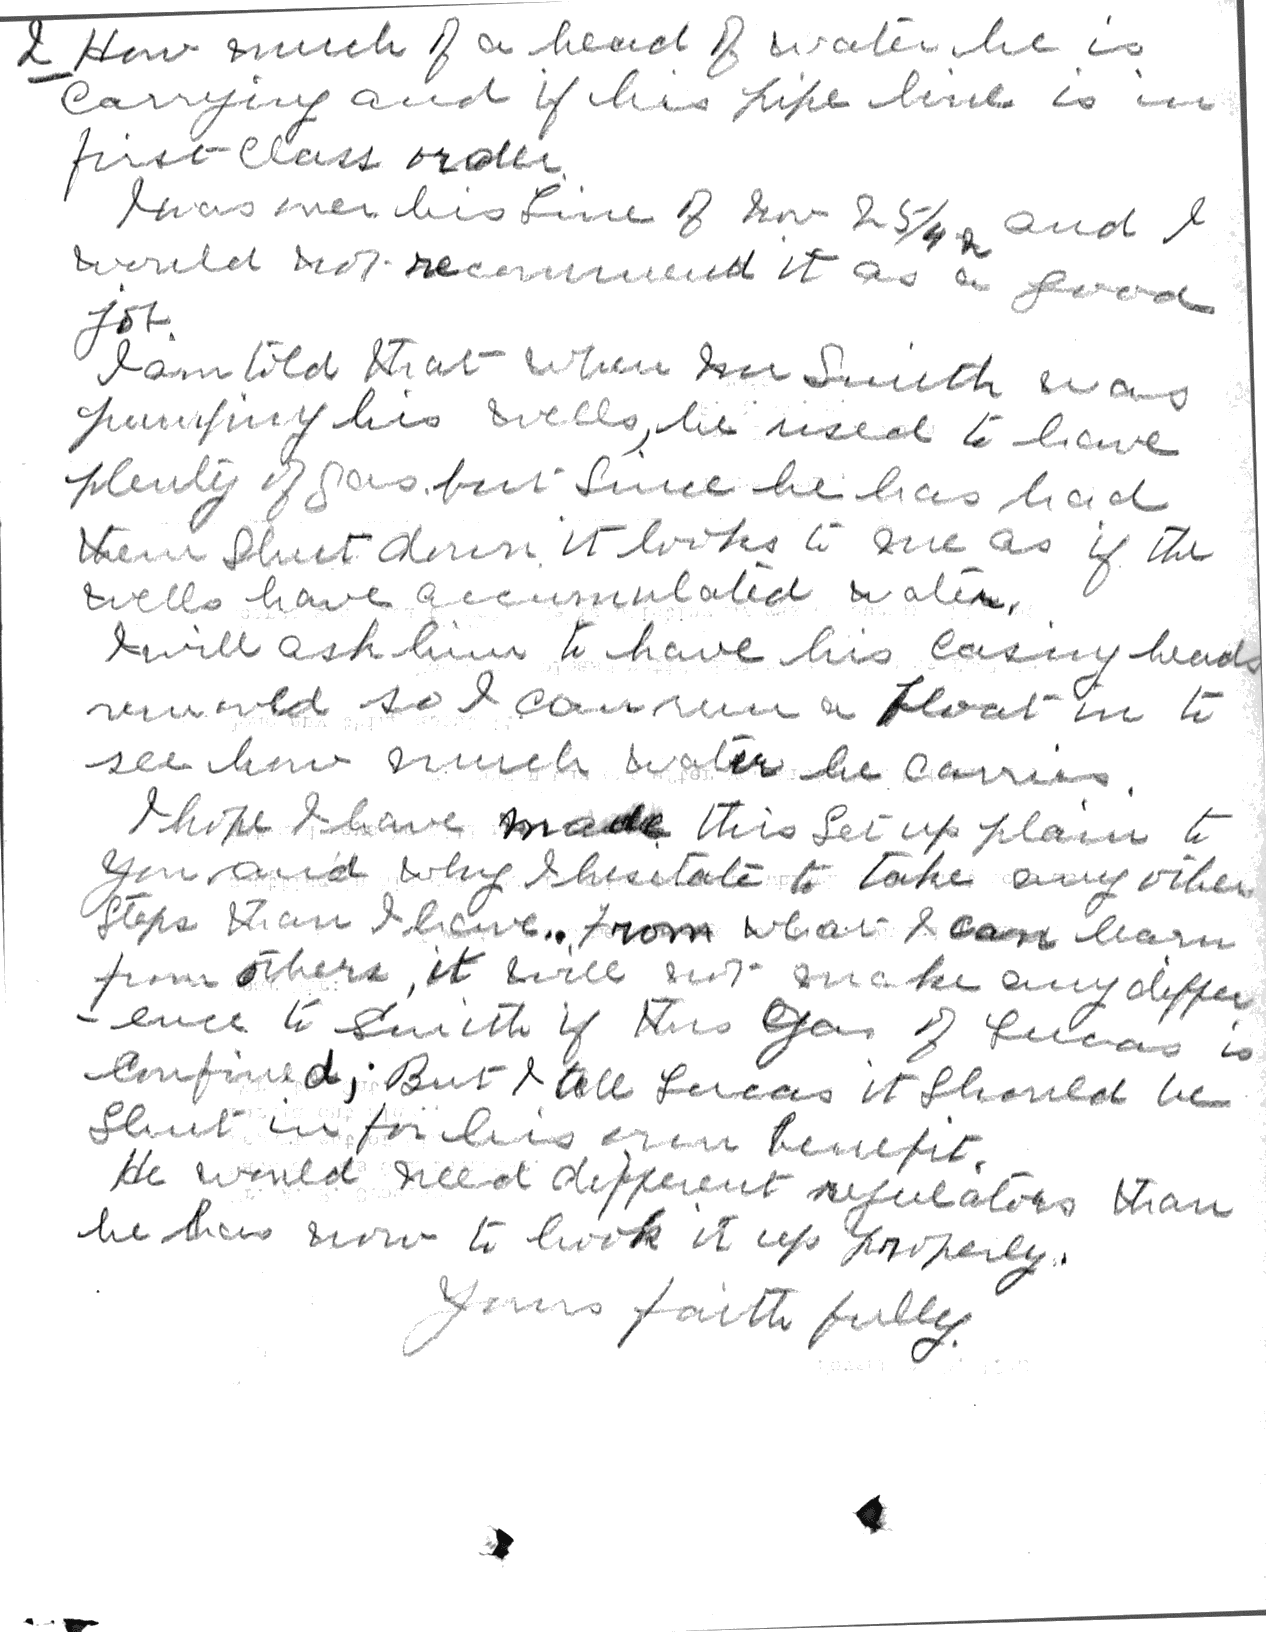 2 How much of a head of water he is
carrying and if his pipe line is in
first Class order.
I was over his Line of Nov 25/42 and I
would not recommend it as a good
job.
I am told that when Mr Smith was
pumping his wells, he used to have
plenty of gas. but Since he has had
them Shut down, it looks to me as if the
wells have accumulated water.
I will ask him to have his Casing heads
removed so I can run a float in to
see how much water he carries.
I hope I have made this Set up plain to
you and why I hesitate to take any other
Steps than I have.. from what I can learn
from others, it will not make any differ
-ence to Smith if this Gas of Lucas is
Confined; But I tell Lucas it Should be
Shut in for his own benefit.
He would need different regulators than
he has now to hook it up properly.
Yours faithfully.